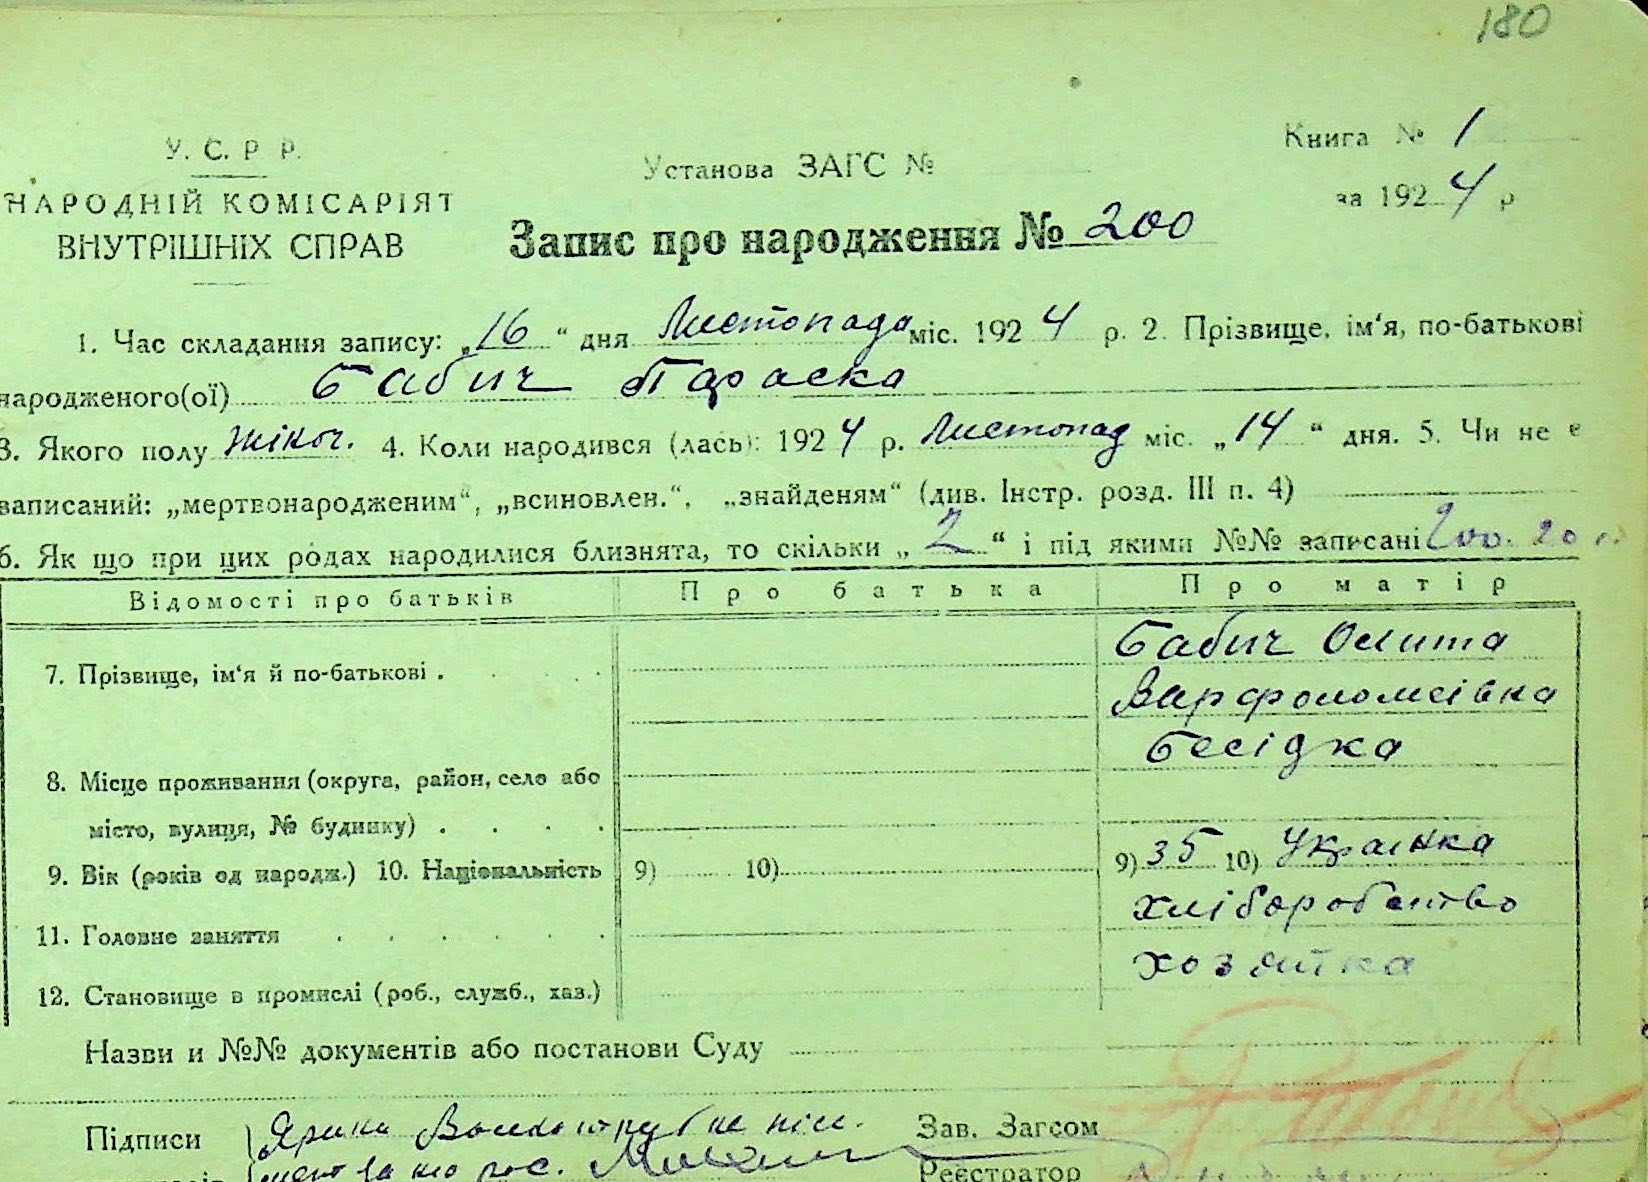 180
У. С. Р Р.
НАРОДНІЙ КОМІСАРІЯТ
ВНУТРІШНІХ СПРАВ
Установа ЗАГС №
Книга № 1
за 1924 р
Запис про народження № 200
1. Час складання запису: „16“ дня Листопада міс. 1924 р. 2. Прізвище, ім‘я, по-батькові
народженого(ої) Бабич Параска
3. Якого полу жіноч. 4. Коли народився (лась): 1924 р. Листопад міс. „14“ дня. 5. Чи не є
записаний: „мертвонародженим“, „всиновлен.“, „знайденям“ (див. Інстр. розд. III п. 4)
6. Як що при цих родах народилися близнята, то скільки „2“ і під якими №№ записані 200.
Відомості про батьків Про батька Про матір
7. Прізвище, ім‘я й по-батькові . Бабич
Варфоломеівна
8. Місце проживання (округа, район, село або Бесідка
місто, вулиця, № будинку) . . . .
9. Вік (років од народж.) 10. Національність 9) 10) 9) 35 10) Українка
11. Головне заняття . . . . . . хліборобство
12. Становище в промислі (роб., служб., хаз.) хозяйка
Назви и №№ документів або постанови Суду
Підписи Зав. Загсом
Реєстратор